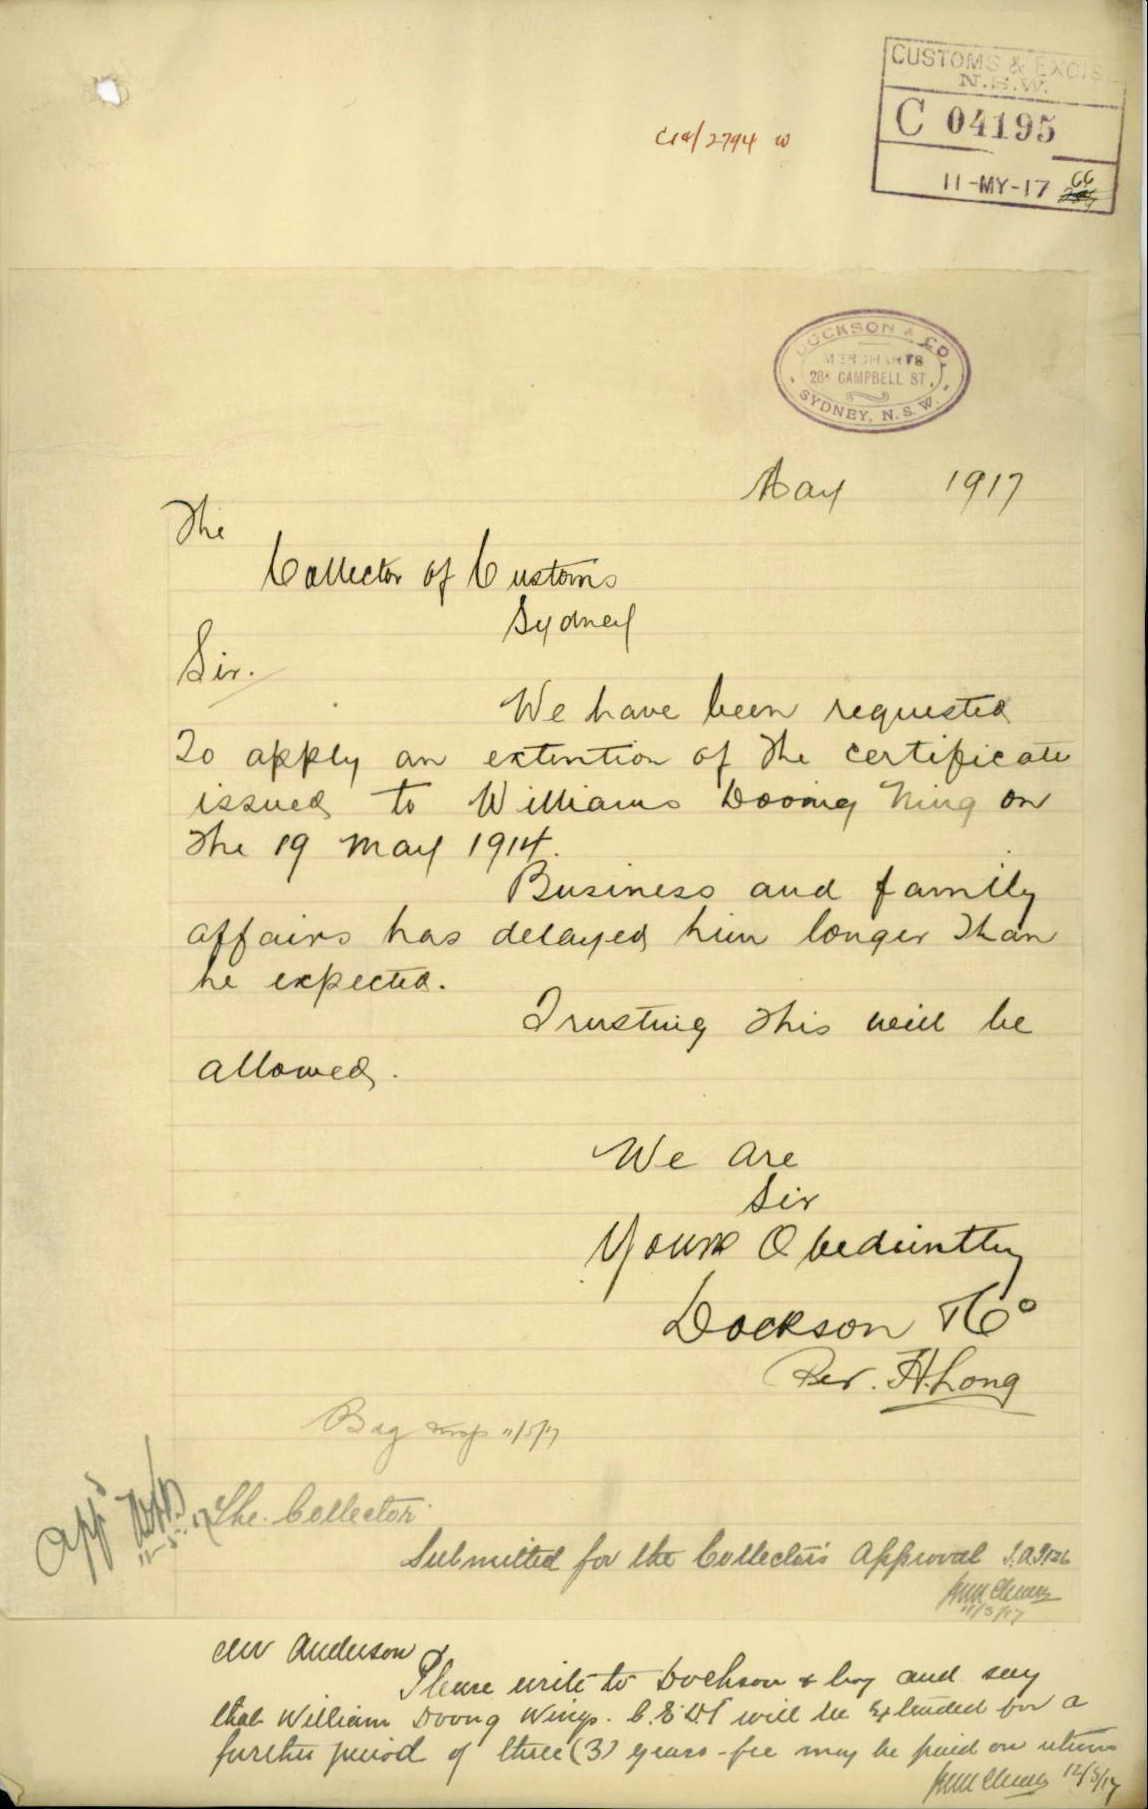 CUSTOMS & EXCISE
N.S.W.
C 04195
11-MY-17
C14/2794 W
DOCKSON & CO.
MERCHANTS
CAMPBELL ST.
SYDNEY, N.S.W.
May 1917
The
Collector of Customs
Sydney
Sir.
We have been requested
To apply an extention of the certificate
issued to Williams Doong Wing on
the 19 May 1914.
Business and family
affairs has delayed him longer than
he expected.
Trusting this will be
allowed.
We are
Sir
Yours Obedintly
Dockson & Co
Per. H. Long
11/5/17
App
11-5-17
The Collector
Submitted for the Collector's Approval
11/5/17
Mr Anderson
Please write to Dockson & Coy and say
that William Doong Wing's C.E.D.T will be Extended for a
further period of three (3) years - fee may be paid on return
12/5/17